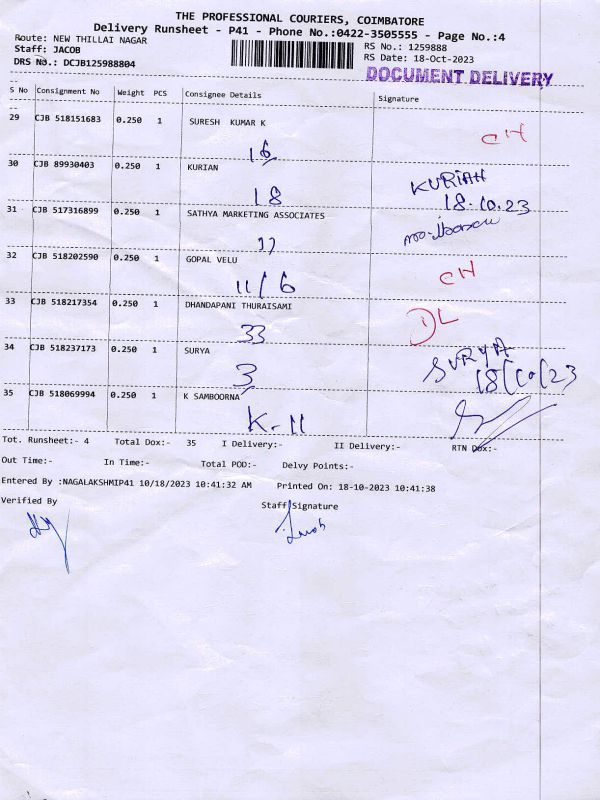 THE PROFESSIONAL COURIERS, COIMBATORE
Delivery Runsheet - P41 - Phone No.:0422-3505555 - Page No.:4
Route: NEW THILLAI NAGAR
RS No.: 1259888
Staff: JACOB
RS Date: 18-Oct-2023
DRS No.: DCJB125988804
DOCUMENT DELIVERY
S No Consignment No Weight PCS Consignee Details Signature
29 CJB 518151683 0.250 1 SURESH KUMAR K
CH
16
30 CJB 89930403 0.250 1 KURIAN
KURIAN
18 18.10.23
31 CJB 517316899 0.250 1 SATHYA MARKETING ASSOCIATES
32 CJB 518202590 0.250 1 GOPAL VELU
CH
11/6
33 CJB 518217354 0.250 1 DHANDAPANI THURAISAMI
DL
33
34 CJB 518237173 0.250 1 SURYA
SURYA
3 18/10/23
35 CJB 518069994 0.250 1 K SAMBOORNA
K-11
Tot. Runsheet:- 4 Total Dox:- 35 I Delivery:- II Delivery:- RTN Dox:-
Out Time:- In Time:- Total POD:- Delvy Points:-
Entered By :NAGALAKSHMIP41 10/18/2023 10:41:32 AM Printed On: 18-10-2023 10:41:38
Verified By Staff Signature
Jacob